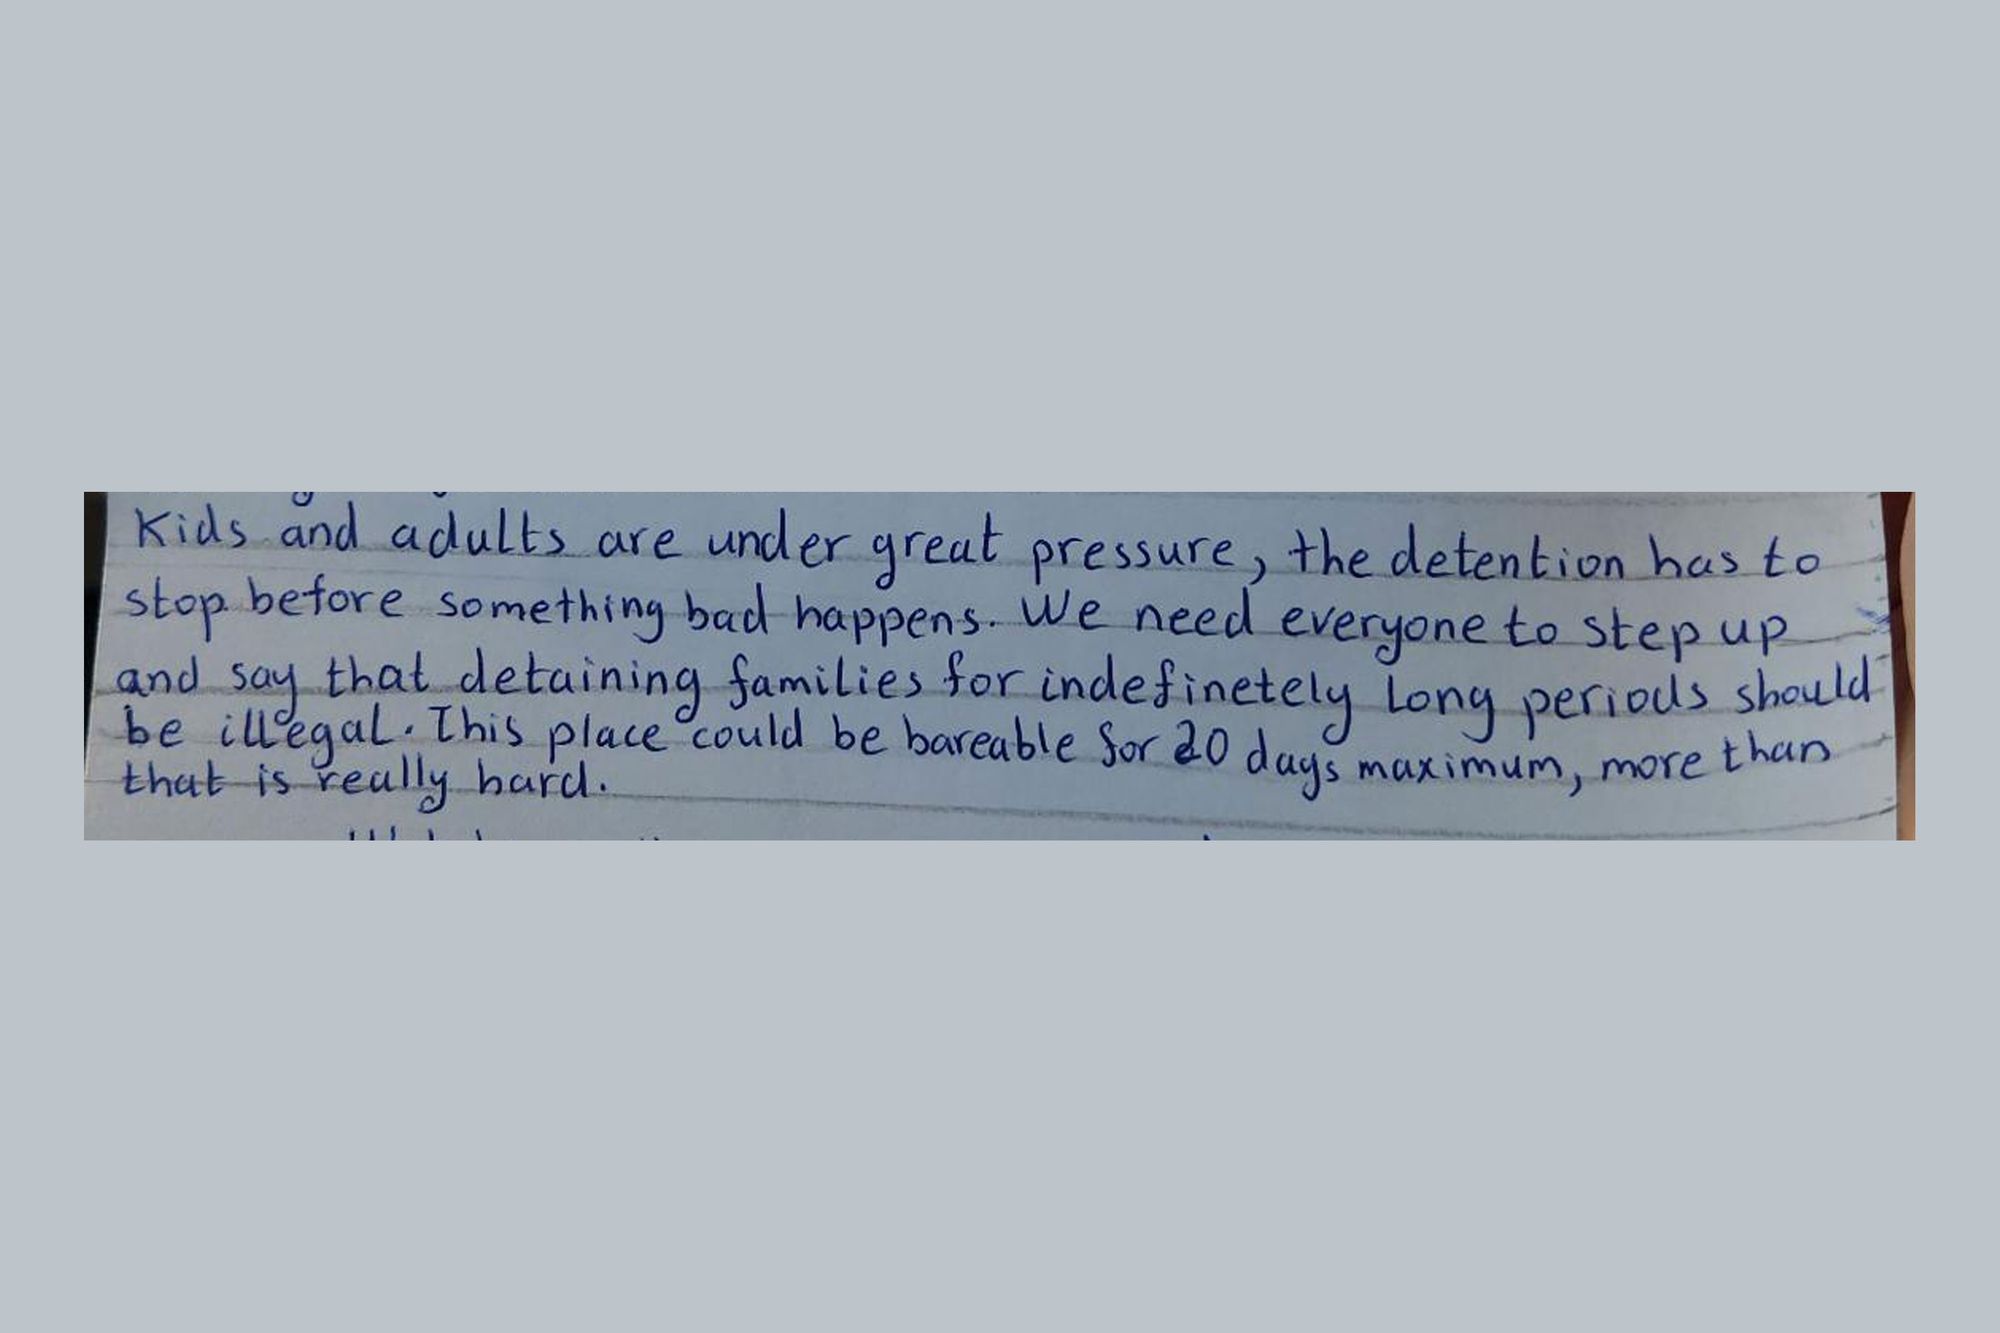 Kids and adults are under great pressure, the detention has to
stop before something bad happens. We need everyone to step up
and say that detaining families for indefinetely long periods should
be illegal. This place could be bareable for 20 days maximum, more than
that is really hard.